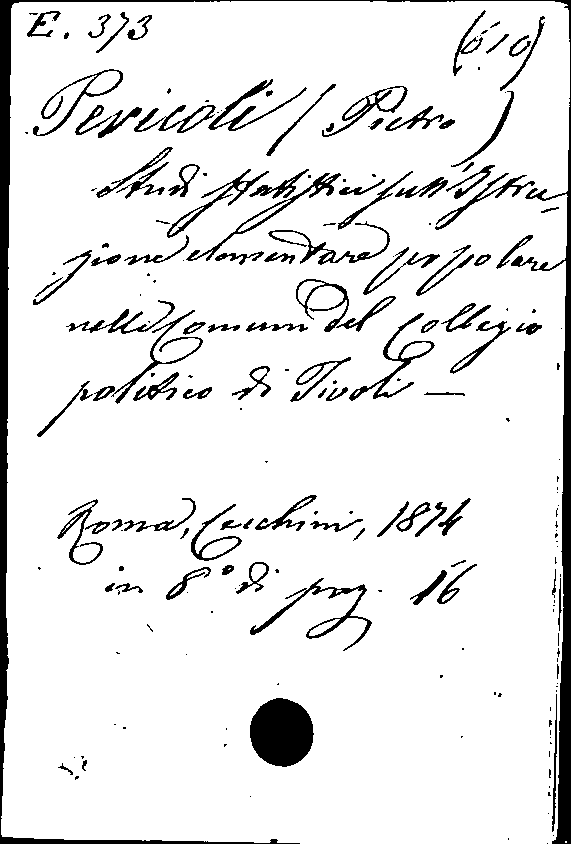 E. 373
(610)
Pericoli (Pietro)
Studi statistici sull'Istru-
zione elementare popolare
nelli Comuni del Collegio
politico di Tivoli —
Roma, Cecchini, 1874
in 8° di pag. 16